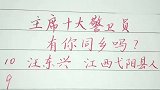 主席十大警卫员
有你同乡吗？
10 汪东兴 江西弋阳县人
9